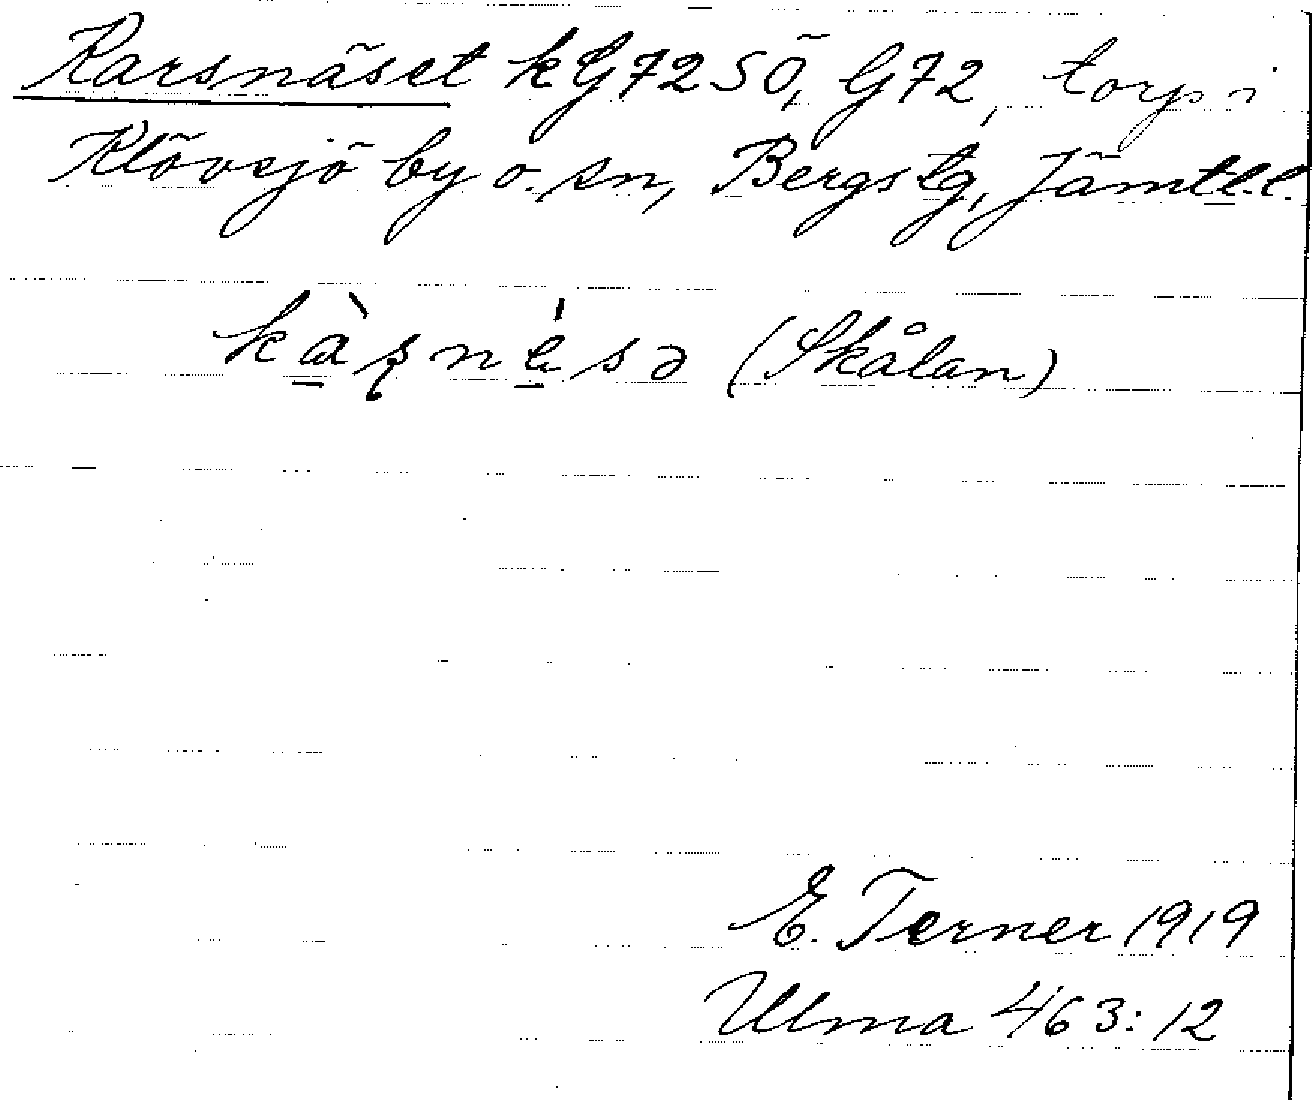 Karsnäset kG72SÖ, G72, torp i
Klövsjö by o. sn, Bergs tg, Jämtl.l.
kàʂnésə (Skålan)
E. Terner 1919
Ulma 463:12